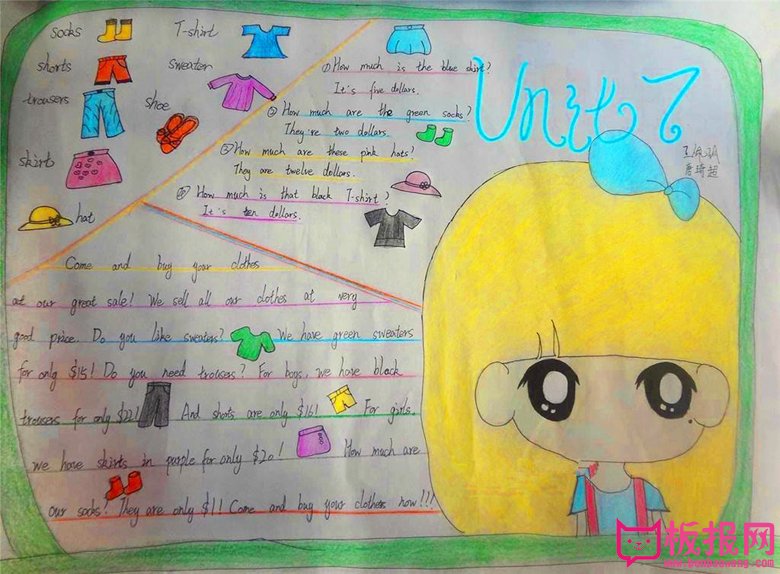 socks
T-shirt
shorts
sweater
trousers
shoe
skirt
hat
① How much is the blue shirt?
It's five dollars.
② How much are the green socks?
They're two dollars.
③ How much are these pink hats?
They are twelve dollars.
④ How much is that black T-shirt?
It's ten dollars.
Unit 7
唐琦超
Come and buy your clothes
at our great sale! We sell all our clothes at very
good price. Do you like sweaters? We have green sweaters
for only $15! Do you need trousers? For boys, we have black
trousers for only $22! And shots are only $16! For girls,
we have skirts in purple for only $20! How much are
our socks? They are only $1! Come and buy your clothes now!!!
板报网
www.banbaowang.com